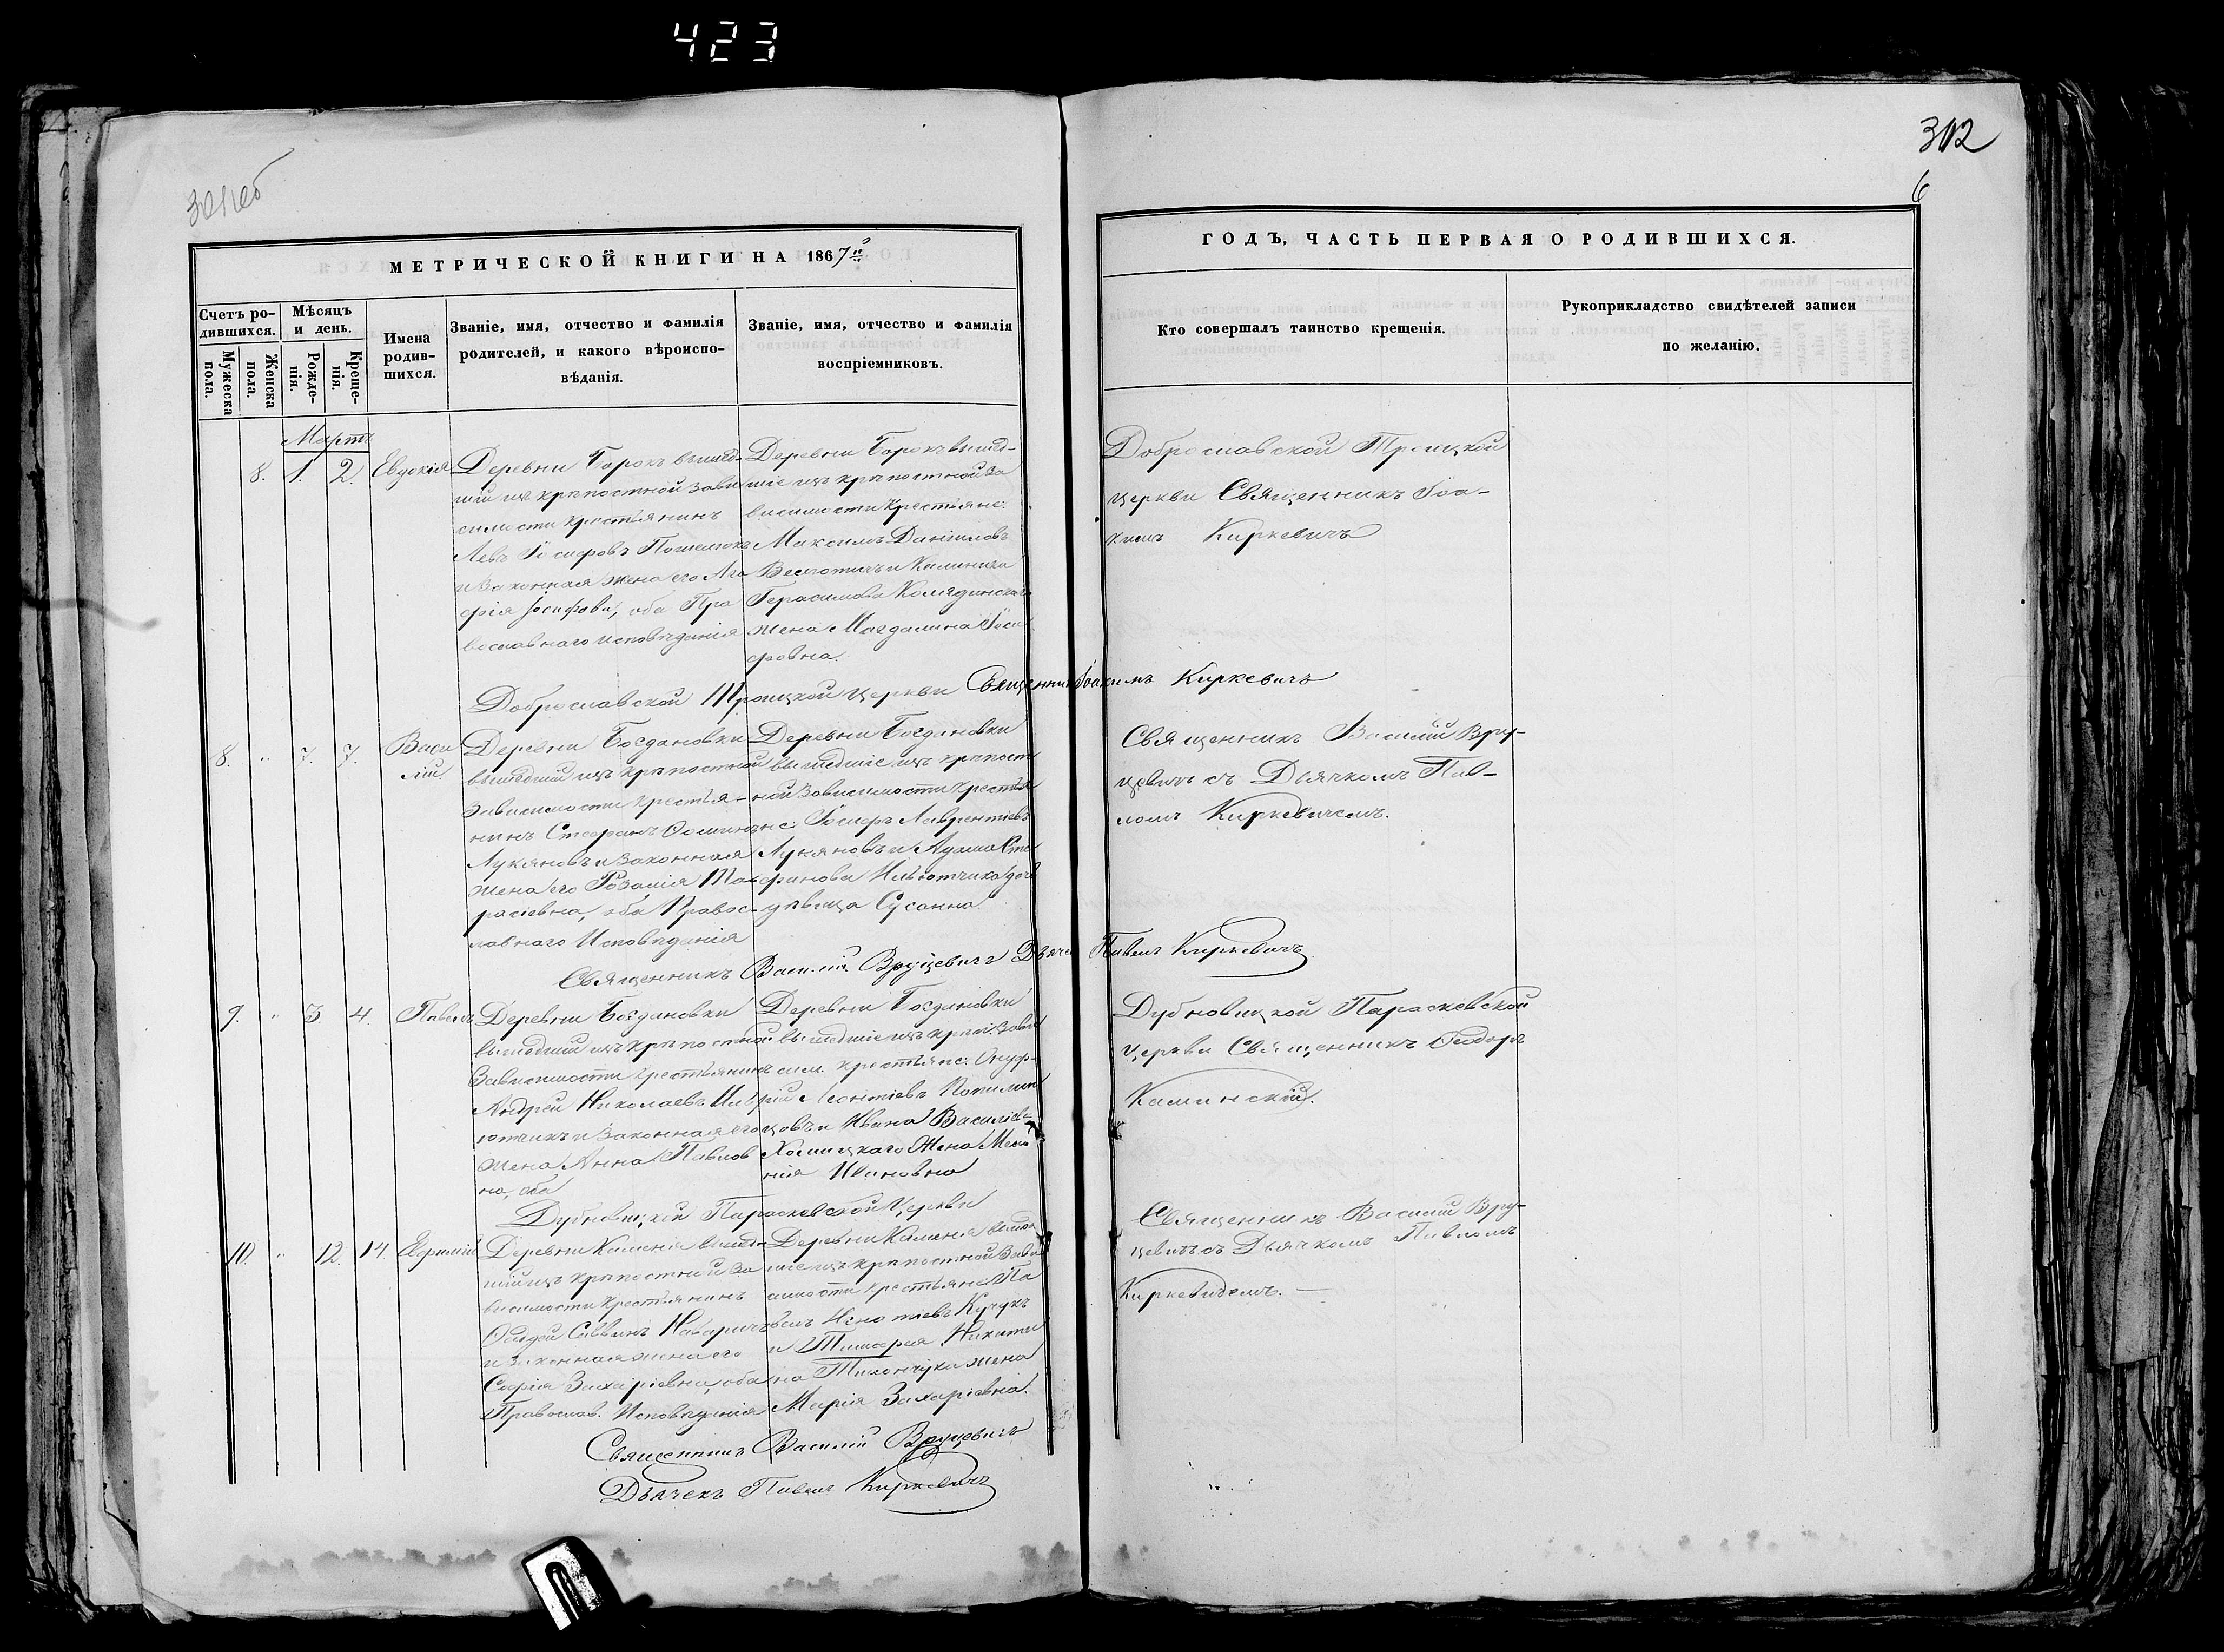 423
312
6
МЕТРИЧЕСКОЙ КНИГИ НА 1867го
ГОДЪ, ЧАСТЬ ПЕРВАЯ О РОДИВШИХСЯ.
Счетъ ро-
дившихся.
Мужеска
пола.
Женска
пола.
Мѣсяцъ
и день.
Рожде-
нія.
Креще-
нія.
Имена
родив-
шихся.
Званіе, имя, отчество и фамилія
родителей, и какого вѣроиспо-
вѣданія.
Званіе, имя, отчество и фамилія
воспріемниковъ.
Кто совершалъ таинство крещенія.
Рукоприкладство свидѣтелей записи
по желанію.
Мартъ
8. 1. 2. Евдокія
Деревни Борокъ вышед-
шій изъ крѣпостной зави
симости крестьянинъ
Левъ Іосифовъ
и законная жена его Ага
фія Іосифова, оба Пра
вославнаго исповѣданія
Деревни Борокъ вышед-
шіе изъ крѣпостной за
висимости крестьяне:
Максимъ Даніиловъ
Герасимова
жена Магдалина Іоси
фовна.
Доброславской Троицкой
церкви Священникъ Іоа-
кимъ Киркевичъ
Доброславской Троицкой церкви Священникъ Іоакимъ Киркевичъ
8. " 7. 7. Васи
лій
Деревни Богдановки
вышедшій изъ крѣпостной
зависимости крестья-
нинъ Стефанъ
Лукяновъ и законная
жена его Розалія Та-
расіевна, оба Правос-
лавнаго Исповѣданія
Деревни Богдановки
вышедшіе изъ крѣпост
ной зависимости крестья
не: Іосифъ Лаврентіевъ
Лукяновъ и Адама Сте
фанова Ильютчика доч
Сусанна
Священникъ Василій Вру-
цевичъ съ Дьячкомъ Пав-
ломъ Киркевичемъ.
Священникъ Василій Вруцевичъ Дьячекъ Павелъ Киркевичъ
9. " 3. 4. Павелъ
Деревни Богдановки
вышедшій изъ крѣпостной
зависимости крестьянинъ
Андрей Николаевъ Иль
ютчикъ и законная его
жена Анна Павлов
на, оба
Деревни Богдановки
вышедшіе изъ крѣп. зави
сим. крестьяне: Онуф-
рій Леонтіевъ
и Ивана Василіев
Жена Мела
нія Ивановна
Дубновицкой Параскевской
церкви Священникъ Ѳеодоръ
Каминскій.
Дубновицкой Параскевской Церкви
10. " 12. 14. Евфимій
Деревни Каменя вышед-
шій изъ крѣпостной за
висимости крестьянинъ
Саввинъ
и законная жена его
Софія Захаріевна, оба
Православ. Исповѣданія
Деревни Каменя вышед
шіе изъ крѣпостной зави
симости крестьяне Па
велъ Игнатіевъ Кучукъ
и Никити
на Тихончука жена
Марія Захаріевна.
Священникъ Василій Вру-
цевичъ съ Дьячкомъ Павломъ
Киркевичемъ.
Священникъ Василій Вруцевичъ
Дьячекъ Павелъ Киркевичъ